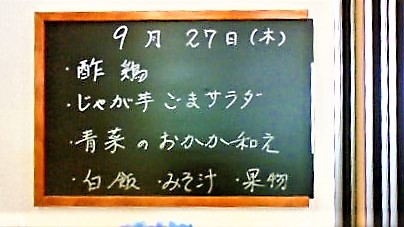 9月27日(木)
・酢鶏
・じゃが芋ごまサラダ
・青菜のおかか和え
・白飯・みそ汁・果物